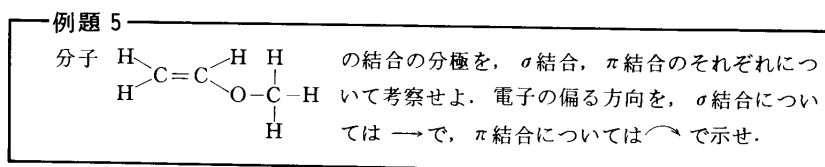 例題 5
分子 H H H の結合の分極を, σ結合, π結合のそれぞれにつ
C=C
H O−C−H いて考察せよ. 電子の偏る方向を, σ結合につい
H ては → で, π結合については⤵で示せ.